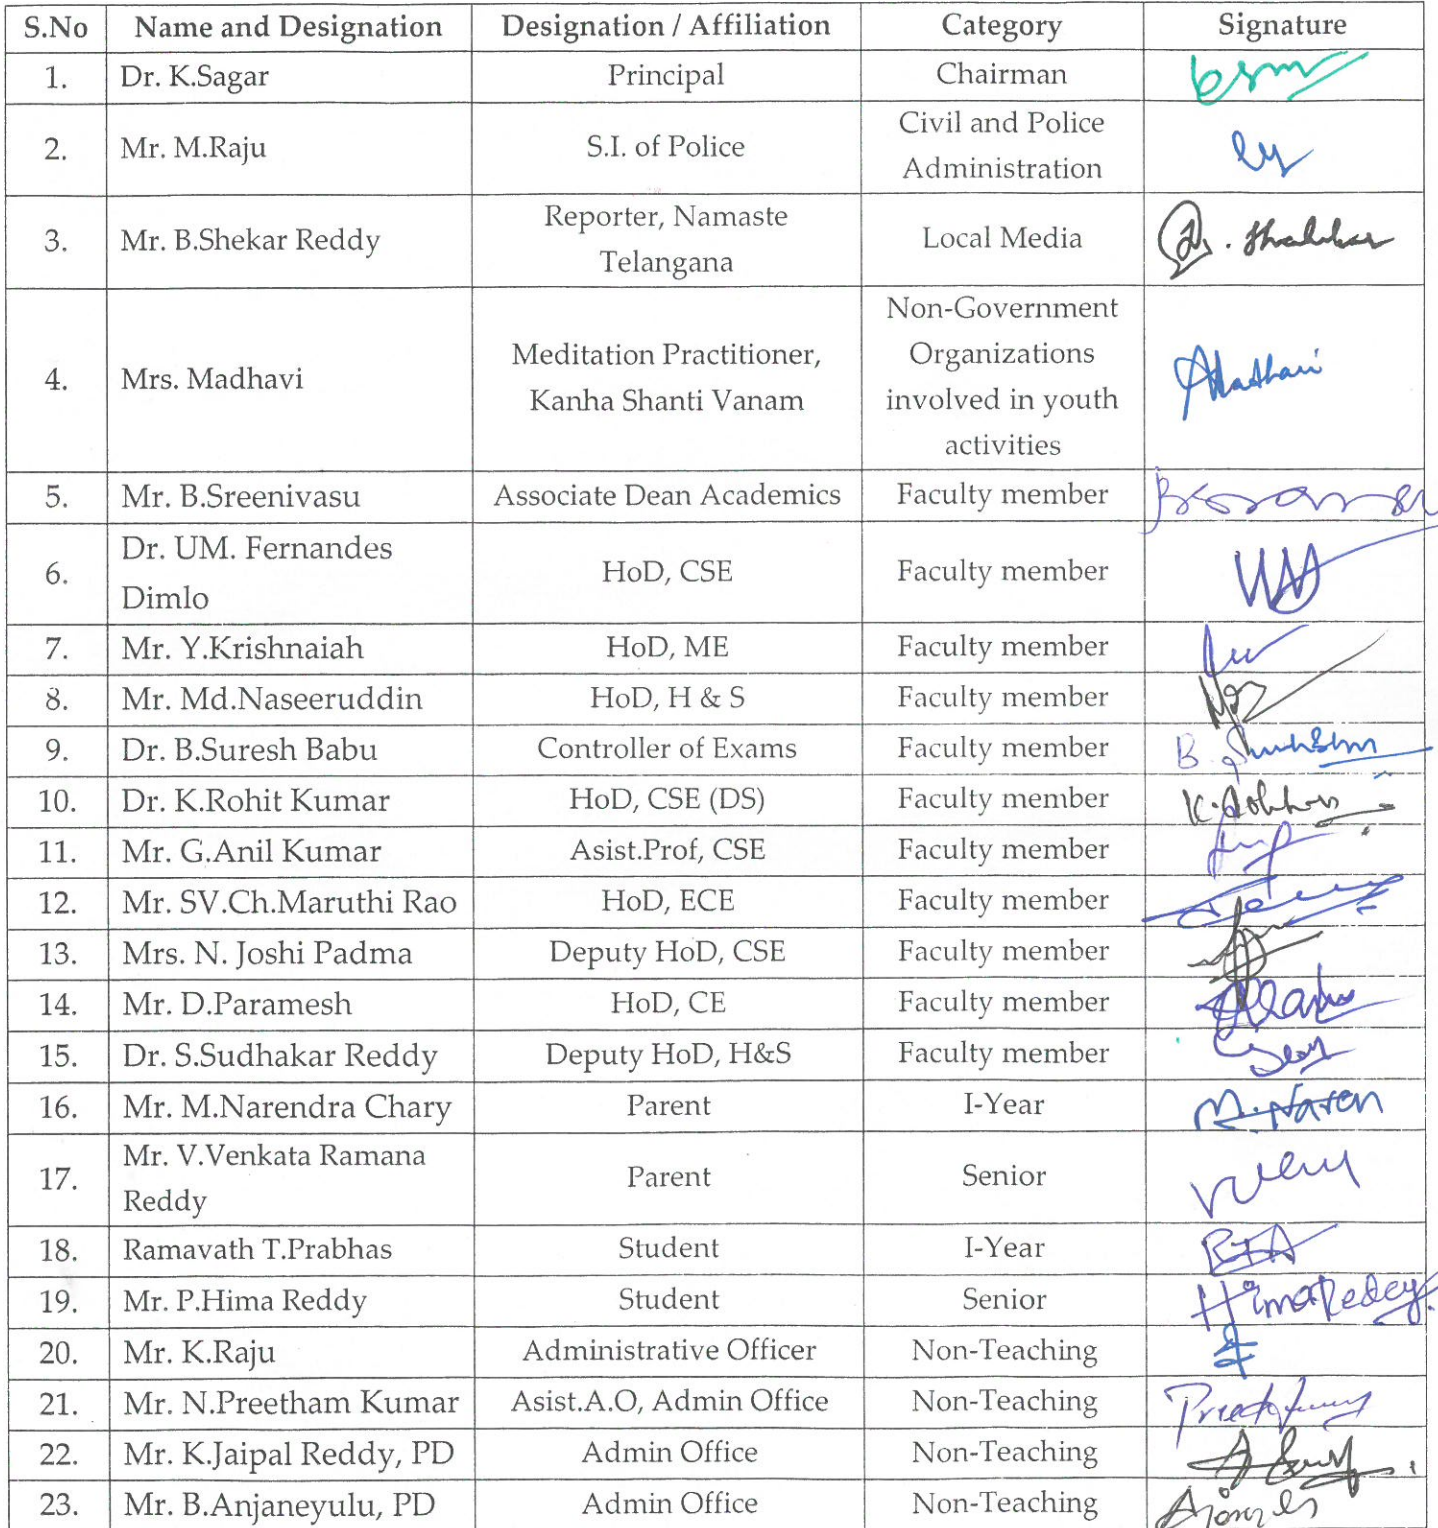 S.No Name and Designation Designation / Affiliation Category Signature
1. Dr. K.Sagar Principal Chairman
2. Mr. M.Raju S.I. of Police Civil and Police
Administration
3. Mr. B.Shekar Reddy Reporter, Namaste
Telangana Local Media
4. Mrs. Madhavi Meditation Practitioner,
Kanha Shanti Vanam Non-Government
Organizations
involved in youth
activities Madhavi
5. Mr. B.Sreenivasu Associate Dean Academics Faculty member
6. Dr. UM. Fernandes
Dimlo HoD, CSE Faculty member
7. Mr. Y.Krishnaiah HoD, ME Faculty member
8. Mr. Md.Naseeruddin HoD, H & S Faculty member
9. Dr. B.Suresh Babu Controller of Exams Faculty member
10. Dr. K.Rohit Kumar HoD, CSE (DS) Faculty member
11. Mr. G.Anil Kumar Asist.Prof, CSE Faculty member
12. Mr. SV.Ch.Maruthi Rao HoD, ECE Faculty member
13. Mrs. N. Joshi Padma Deputy HoD, CSE Faculty member
14. Mr. D.Paramesh HoD, CE Faculty member
15. Dr. S.Sudhakar Reddy Deputy HoD, H&S Faculty member
16. Mr. M.Narendra Chary Parent I-Year M.Naren
17. Mr. V.Venkata Ramana
Reddy Parent Senior
18. Ramavath T.Prabhas Student I-Year
19. Mr. P.Hima Reddy Student Senior HimaReddy
20. Mr. K.Raju Administrative Officer Non-Teaching
21. Mr. N.Preetham Kumar Asist.A.O, Admin Office Non-Teaching
22. Mr. K.Jaipal Reddy, PD Admin Office Non-Teaching
23. Mr. B.Anjaneyulu, PD Admin Office Non-Teaching